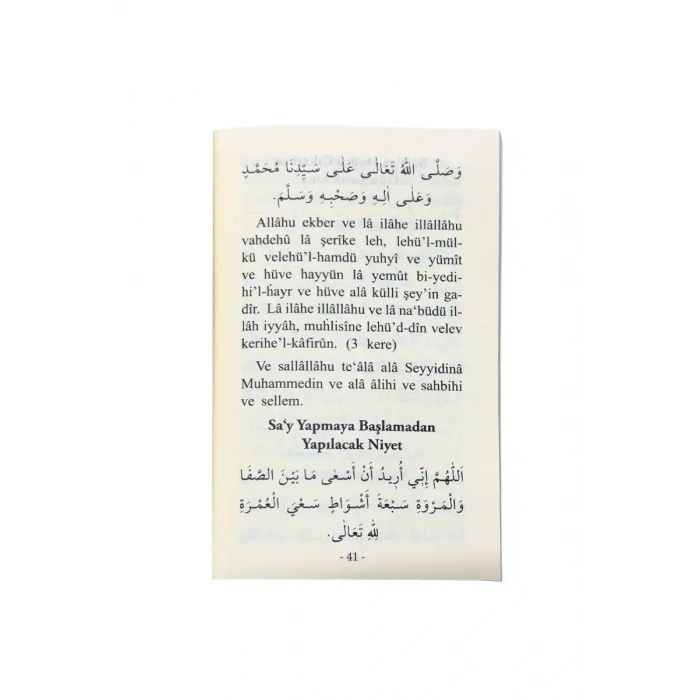 وَصَلَّى اللهُ تَعَالَى عَلَى سَيِّدِنَا مُحَمَّدٍ
وَعَلَى اٰلِهِ وَصَحْبِهِ وَسَلَّمَ.
Allâhu ekber ve lâ ilâhe illâllâhu
vahdehû lâ şerîke leh, lehü'l-mül-
kü velehü'l-hamdü yuhyî ve yümît
ve hüve hayyün lâ yemût bi-yedi-
hi'l-ḣayr ve hüve alâ külli şey'in ga-
dîr. Lâ ilâhe illâllâhu ve lâ na‘büdü il-
lâh iyyâh, muḣlisîne lehü'd-dîn velev
kerihe'l-kâfirûn. (3 kere)
Ve sallâllâhu te‘âlâ alâ Seyyidinâ
Muhammedin ve alâ âlihi ve sahbihi
ve sellem.
Sa‘y Yapmaya Başlamadan
Yapılacak Niyet
اَللّٰهُمَّ إِنِّي أُرِيدُ أَنْ أَسْعٰى مَا بَيْنَ الصَّفَا
وَالْمَرْوَةِ سَبْعَةَ أَشْوَاطٍ سَعْيَ الْعُمْرَةِ
لِلّٰهِ تَعَالٰى.
- 41 -